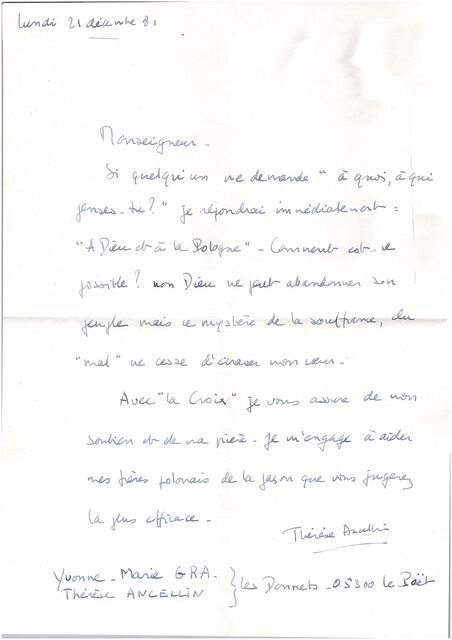 Lundi 21 décembre 81
Monseigneur -
Si quelqu'un me demande "à quoi, à qui
penses-tu?" je répondrai immédiatement :
"A Dieu et à la Pologne" - Comment est-ce
possible? non Dieu ne peut abandonner son
peuple mais ce mystère de la souffrance, du
"mal" ne cesse d'écraser mon cœur -
Avec "la Croix" je vous assure de mon
soutien et de ma prière - Je m'engage à aider
mes frères polonais de la façon que vous jugerez
la plus efficace -
Thérèse Ancellin
Yvonne-Marie GRA.
Thérèse ANCELLIN } les Bonnets - 05300 le Poët